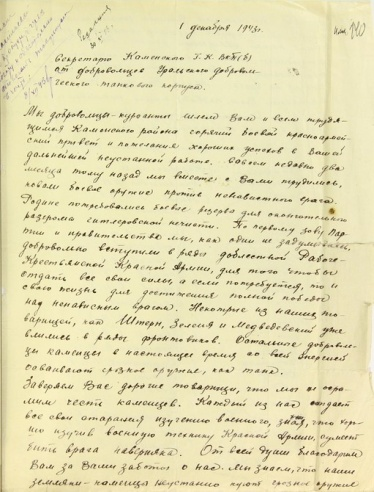 1 декабря 1943г.
Секретарю Каменского Г.К. ВКП(б)
от добровольцев Уральского добровол-
ческого танкового корпуса.
Мы добровольцы-курсанты шлем Вам и всем трудя-
щимся Каменского района горячий боевой красноармей-
ский привет и пожелания хороших успехов в Вашей
дальнейшей неустанной работе. Совсем недавно два
месяца тому назад мы вместе с Вами трудились,
ковали боевое оружие против ненавистного врага.
Родине потребовались боевые резервы для окончательного
разгрома гитлеровской нечисти. По первому зову пар-
тии и правительства мы, как один не задумываясь,
добровольно вступили в ряды доблестной Рабоче-
Крестьянской Красной Армии, для того чтобы
отдать все свои силы, а если потребуется, то и
свою жизнь для достижения полной победы
над ненависным врагом. Некоторые из наших то-
варищей, как Штерн, и Медведовский уже
влились в ряды фронтовиков. Остальные доброволь-
цы каменцы в настоящее время со всей энергией
осваивают грозное оружие, как танк.
Заверяем Вас дорогие товарищи, что мы не осра-
мим честь каменцев. Каждый из нас отдает
все свои старания изучению военного, зная, что хоро-
шо изучив военную технику Красной Армии, сумеет
бить врага наверняка. От всей души благодарим
Вам за Вашу заботу о нас. Мы знаем, что наши
земляки-каменцы неустанно куют грозное оружие